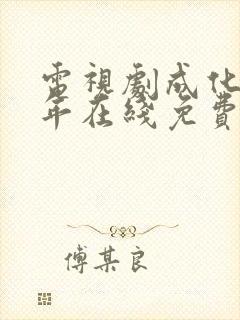 電視劇成化
年在綫免費
傅某良